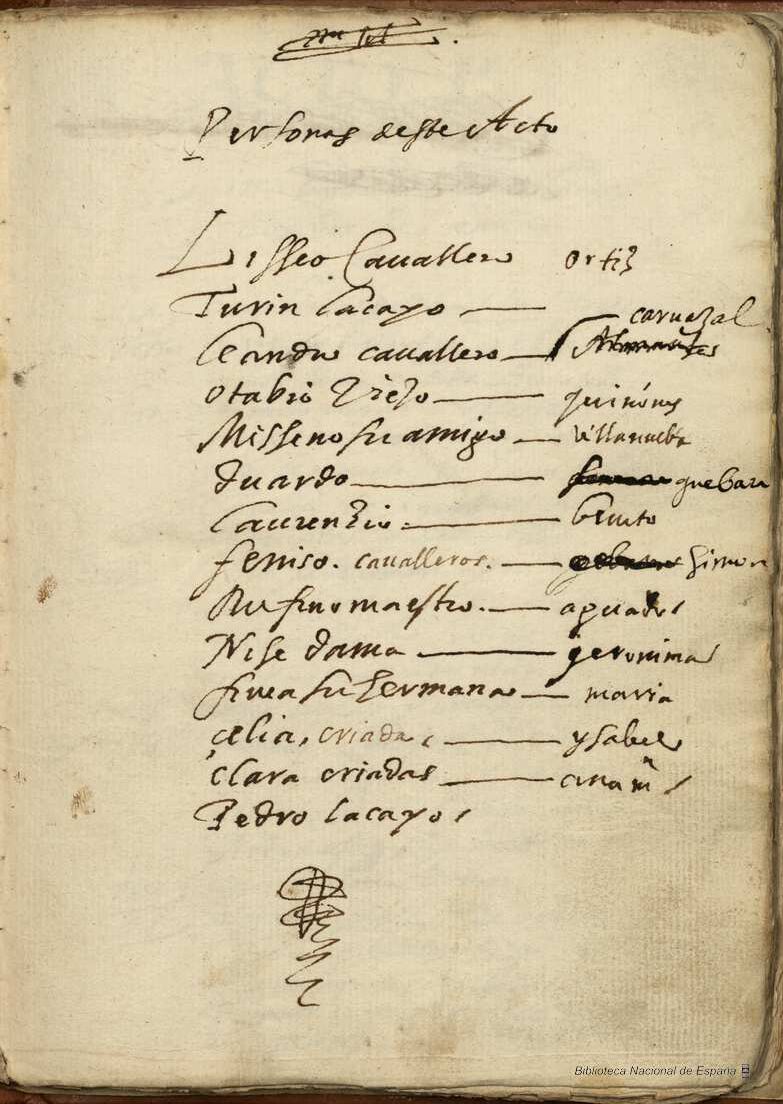 Personas deste Acto
Lisseo Cavallero ortiz
Turin lacayo
carvazal
leandro cavallero
otabio viejo quiñones
Misseno su amigo villanueba
duardo guebara
laurenzio benito
feniso. cavalleros. simon
Rufino maestro. aguado
Nise dama geronima
finea su hermana maria
celia, criada, ysabel
clara criadas ana mª
Pedro lacayo
Biblioteca Nacional de España